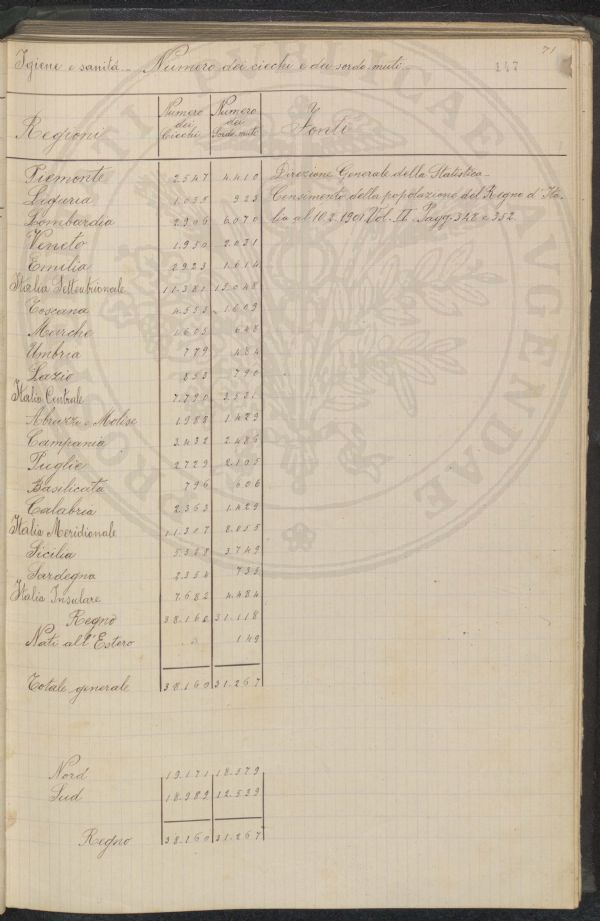 71
Igiene e sanità — Numero dei ciechi e dei sordo-muti — 147
Regioni Numero dei Ciechi Numero dei Sordo-muti Fonti
Piemonte 2547 4.410 Direzione Generale della Statistica —
Liguria 1.055 923 Censimento della popolazione del Regno d'Ita-
Lombardia 2906 6.070 lia al 10.2.1901 Vol. II Pagg. 348 e 352
Veneto 1.950 2.031
Emilia 2923 1.614
Italia Settentrionale 11.381 15.048
Toscana 4.553 1.609
Marche 1.605 648
Umbria 779 484
Lazio 853 790
Italia Centrale 7.790 3.531
Abruzzi e Molise 1988 1.429
Campania 3.432 2.486
Puglie 2729 2.105
Basilicata 796 606
Calabria 2.363 1.429
Italia Meridionale 11.307 8.055
Sicilia 5328 3.749
Sardegna 2.354 735
Italia Insulare 7.682 4.484
Regno 38.160 31.118
Nati all'Estero 149
Totale generale 38.160 31.267
Nord 19.171 18.579
Sud 18.989 12.539
Regno 38.160 31.267
PUBLICAE
AUGENDAE